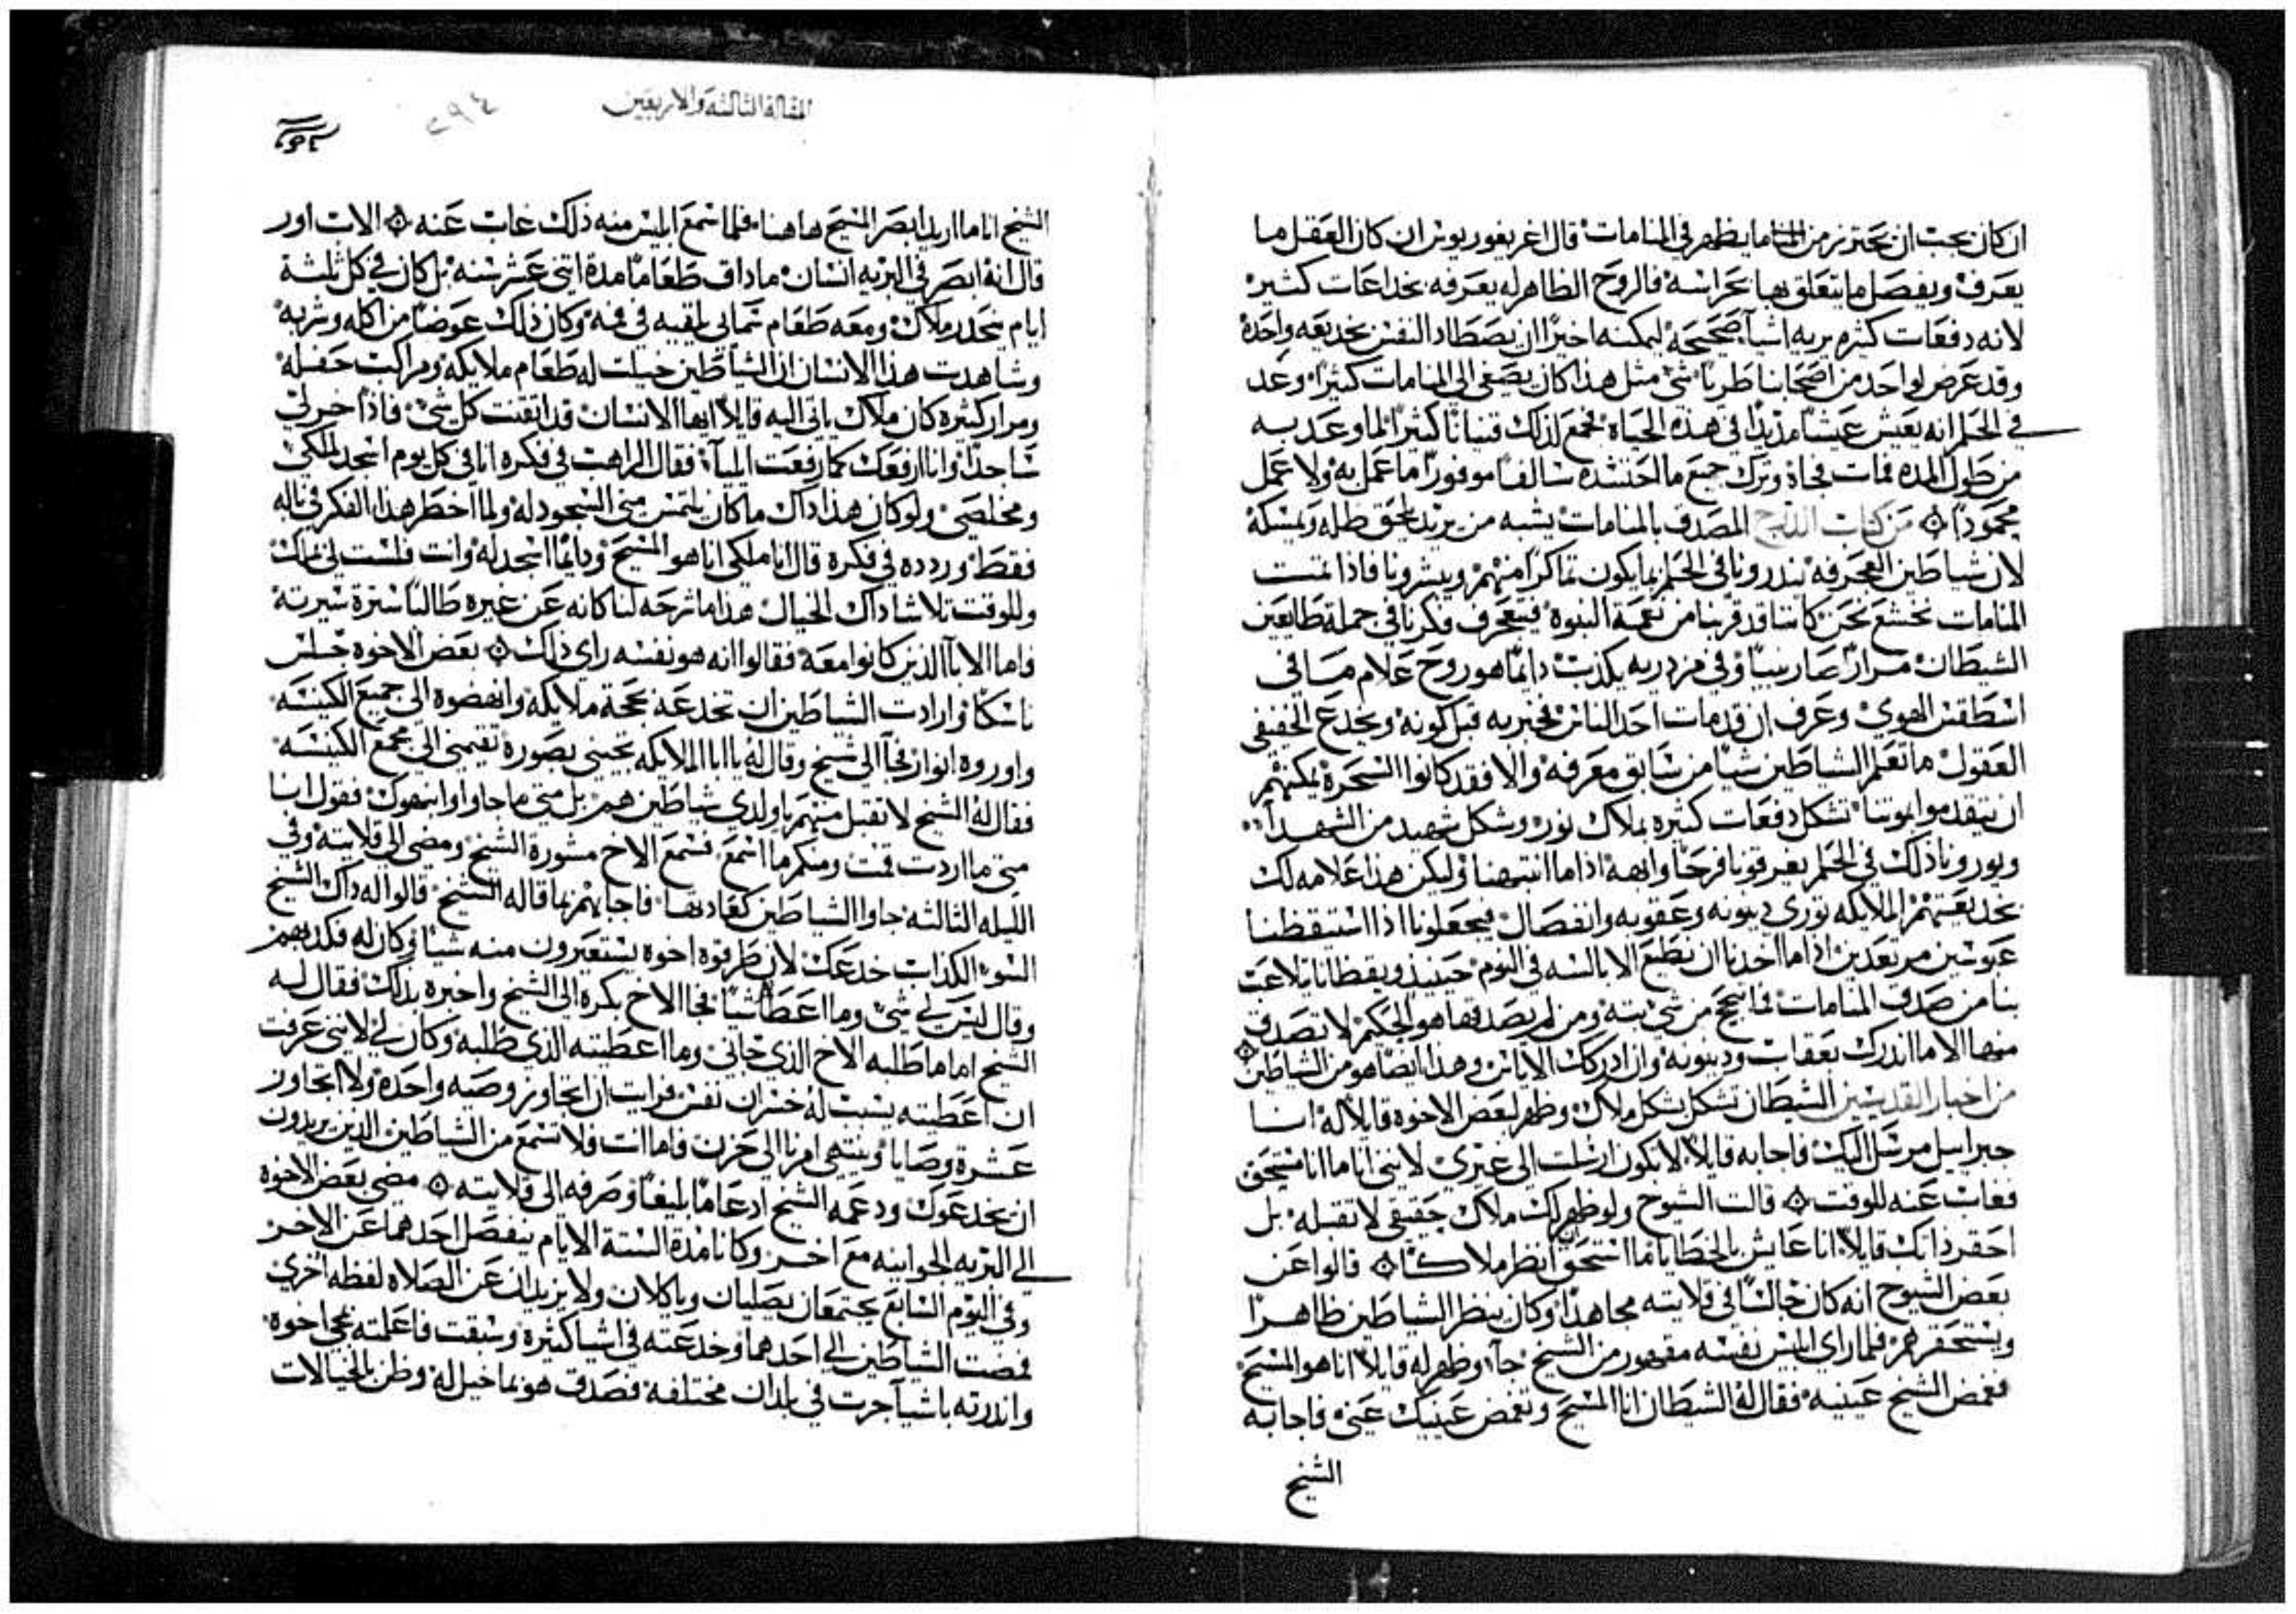 ان كان يجب ان يحترز من ما يظهر في المنامات قال اغريغوريوس ان كان العقل ما
يعرف ويفصل ما يتعلق بها بحراسه فالروح الظاهر له يعرفه بخداعات كثير
لانه دفعات كثيره يريه اشيآ صحيحة ليمكنه اخيرًا ان يصطاد النفس بخديعه واحدة
وقد عرض لواحد من اصحابنا طربا شي مثل هذا كان يصغي الى المنامات كثيرًا وعد
في الحلم انه يعيش عيشًا مديدًا في هذه الحياة فجمع لذلك قنيانًا كثيرًا لما وعد به
من طول المده فمات فجاة وترك جميع ما احتشده سالفًا موفورًا ما عمل به ولا عمل
محمودًا ۞ من كتاب الدرج المصدق بالمنامات يشبه من يريد يلحق ظله ويمسكه
لان شياطين العجرفه ينذرونا في الحلم بما يكون تماكرًا منهم ويبشرونا فاذا تمت
المنامات نخشع نحن كاننا قد قربنا من نعمة النبوه فيتعجرف فكرنا في جملة طايعين
الشيطان مرارًا صار نبيًا وفي مزدريه يكذب دايمًا هو روح علام بما في
اسطقس الهوي وعرف ان قد مات احد الناس فخبر به قبل كونه ويخدع الخفيفي
العقول ما تعلم الشياطين شيًا من سابق معرفه والا فقد كانوا السحرة يمكنهم
ان يتقدموا بموتنا تشكل دفعات كثيره بملاك نور وشكل شهيد من الشهدآ
ويورونا ذلك في الحلم يغرقونا فرحًا وابهة اذا ما انتبهنا وليكن هذا علامه لك
بخديعتهم الملايكه توري دينونه وعقوبه وانفصال فيجعلونا اذا استيقظنا
عبوسين مرتعدين اذا ما اخذنا ان نطيع الابالسه في النوم حينيذ ويقظانا يتلاعب
بنا من صدق المنامات فما ينجح من شي بته ومن لم يصدقها هو الحكيم لا تصدق
منها الا ما انذرك بعقاب ودينونه وان ادركك الاياس وهذا ايضًا هو من الشياطين ۞
من اخبار القديسين الشيطان تشكل بشكل ملاك وظهر لبعض الاخوه قايلاً له انا
جبراييل مرسل اليك فاجابه قايلاً لا يكون ارسلت الى غيري لانني انا ما انا مستحق
فغاب عنه للوقت ۞ قالت الشيوخ ولو ظهر لك ملاك حقيقي لا تقبله بل
احقر ذاتك قايلاً انا عايش بالخطايا ما استحق انظر ملاكًا ۞ قالوا عن
بعض الشيوخ انه كان جالسًا في قلايته مجاهدًا وكان ينظر الشياطين ظاهرًا
ويستحقرهم فلما راى ابليس نفسه مقهور من الشيخ جآ وظهر له قايلاً انا هو المسيح
فغمض الشيخ عينيه فقال له الشيطان انا المسيح وتغمض عينيك عني فاجابه
الشيخ
المقالة الثالثة والاربعين
٢٩٤
الشيخ انا ما اريد ابصر المسيح هاهنا فلما سمع ابليس منه ذلك غاب عنه ۞ الاب اور
قال انه ابصر في البريه انسان ما داق طعامًا مدة اثني عشر سنه بل كان في كل ثلثة
ايام ينحدر ملاك ومعه طعام سمايي يلقيه في فمه وكان ذلك عوضًا من اكله وشربه
وشاهدت هذا الانسان ان الشياطين خيلت له طعام ملايكه ومراكب حفله
ومرار كثيره كان ملاك ياتي اليه قايلاً ايها الانسان قد اتقنت كل شي فاذًا خر لي
ساجدًا وانا ارفعك كما رفعت ايليآ فقال الراهب في فكره انا في كل يوم اسجد لملكي
ومخلصي ولو كان هذا ذاك ما كان يلتمس مني السجود له ولما اخطر هذا الفكر في باله
فقط ورده في فكره قال انا ملكي انا هو المسيح ودايمًا اسجد له وانت فلست لي ملك
وللوقت تلاشا ذاك الخيال هذا ما شرحه لنا كانه عن غيره طالبًا سترة سيرته
فاما الابآ الذين كانوا معه فقالوا انه هو نفسه راى ذلك ۞ بعض الاخوه جلس
ناسكًا وارادت الشياطين ان تخدعه بحجة ملايكه وانهضوه الى جميع الكنيسه
واوروه انوار فجآ الى شيخ وقال له يا ابا الملايكه تجيني بصوره تقيمني الى مجمع الكنيسه
فقال له الشيخ لا تقبل منهم يا ولدي شياطين هم بل متى ما جاوا وانبهوك فقول انا
متى ما اردت قمت ومنكم ما اسمع فسمع الاخ مشورة الشيخ ومضى الى قلايته وفي
الليله الثالثه جاوا الشياطين كعادتها فاجابهم بما قاله الشيخ قالوا له ذاك الشيخ
السوء الكذاب خدعك لان طرقوه اخوه يستعيرون منه شيًا وكان له فكذبهم
وقال ليس لي شي وما اعطا شيًا فجا الاخ بكره الى الشيخ واخبره بذلك فقال له
الشيخ اما ما طلبه الاخ الذي جاني وما اعطيته الذي طلبه وكان لي لانني عرفت
ان اعطيته يسبب له خسران نفس فرايت ان اتجاوز وصيه واحدة ولا اتجاوز
عشرة وصايا وينتهي امرنا الى حزن فاما انت فلا تسمع من الشياطين الذين يريدون
ان يخدعوك ودعمه الشيخ ادعامًا بليغًا وصرفه الى قلايته ۞ مضى بعض الاخوه
الى البريه الجوانيه مع اخر وكانا مدة الستة الايام ينفصل احدهما عن الاخر
وفي اليوم السابع يجتمعان يصليان وياكلان ولا يزيدان عن الصلاه لفظه اخرى
فمضت الشياطين الى احدهما وخدعته في اشيا كثيرة وسبقت فاعلمته بمجي اخوه
وانذرته باشيآ جرت في بلدان مختلفه فصدق هو بما خيل له وظن بالخيالات